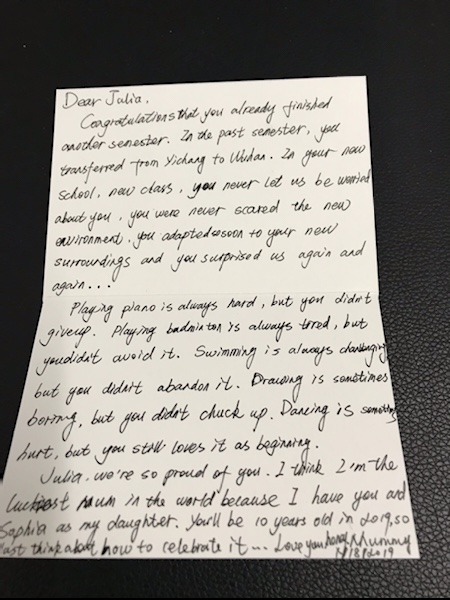 Dear Julia,
Congratulations that you already finished
another semester. In the past semester, you
transferred from Yichang to Wuhan. In your new
school, new class, you never let us be worried
about you, you were never scared the new
environment. you adapted soon to your new
surroundings and you surprised us again and
again...
Playing piano is always hard, but you didn't
giveup. Playing badminton is always tired, but
you didn't avoid it. Swimming is always challenging
but you didn't abandon it. Drawing is sometimes
boring, but you didn't chuck up. Dancing is sometimes
hurt, but you still loves it as beginning.
Julia, we're so proud of you. I think I'm the
luckiest mum in the world because I have you and
Sophia as my daughter. You'll be 10 years old in 2019, so
just think about how to celebrate it... Love you Mummy